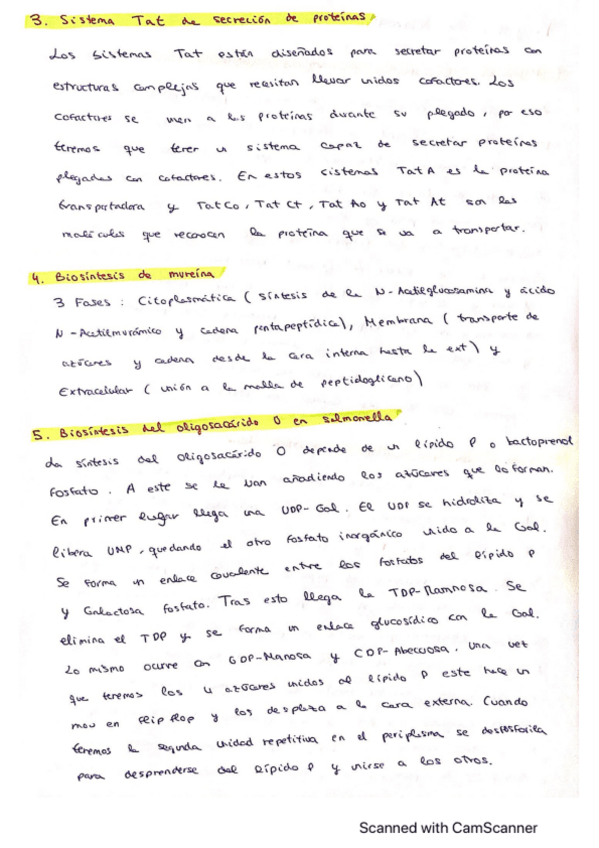 3. Sistema Tat de secreción de proteínas
Los sistemas Tat están diseñados para secretar proteínas con
estructuras complejas que necesitan llevar unidos cofactores. Los
cofactores se unen a las proteínas durante su plegado, por eso
tenemos que tener un sistema capaz de secretar proteínas
plegadas con cofactores. En estos sistemas Tat A es la proteína
transportadora y TatCo, Tat Ct, Tat Ao y Tat At son las
moléculas que reconocen la proteína que se va a transportar.
4. Biosíntesis de mureína
3 Fases: Citoplasmática (síntesis de la N-Acetilglucosamina y ácido
N-Acetilmurámico y cadena pentapeptídica), Membrana (transporte de
azúcares y cadena desde la cara interna hasta la ext) y
Extracelular (unión a la malla de peptidoglicano)
5. Biosíntesis del oligosacárido O en salmonella
La síntesis del oligosacárido O depende de un lípido P o bactoprenol
fosfato. A este se le van añadiendo los azúcares que lo forman.
En primer lugar llega una UDP-Gal. El UDP se hidroliza y se
libera UMP, quedando el otro fosfato inorgánico unido a la Gal.
Se forma un enlace covalente entre los fosfatos del lípido P
y Galactosa fosfato. Tras esto llega la TDP-Ramnosa. Se
elimina el TDP y se forma un enlace glucosídico con la Gal.
Lo mismo ocurre con GDP-Manosa y CDP-Abecuosa. Una vez
que tenemos los 4 azúcares unidos al lípido P este hace un
mov en flip flop y los desplaza a la cara externa. Cuando
tenemos la segunda unidad repetitiva en el periplasma se desfosforila
para desprenderse del lípido P y unirse a los otros.
Scanned with CamScanner